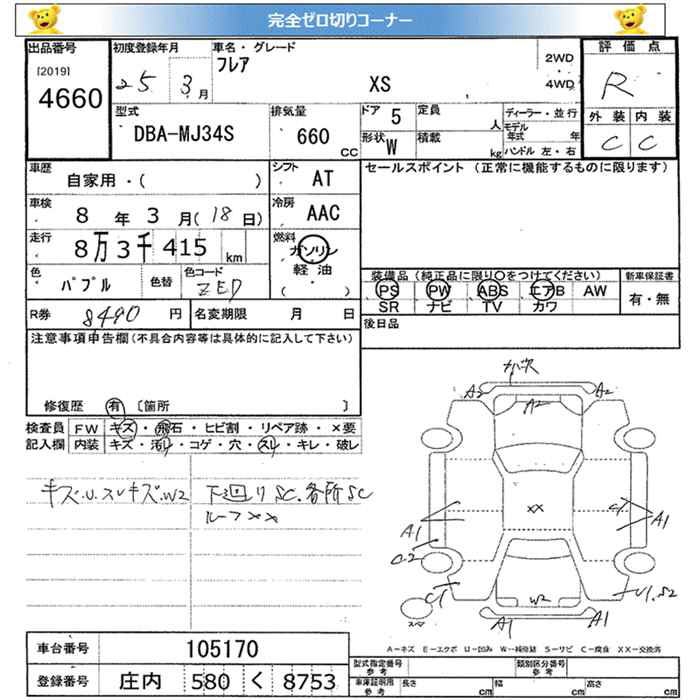 完全ゼロ切りコーナー
出品番号 初度登録年月 車名・グレード 評価点
[2019] 4660 25 3月 フレア XS 2WD 4WD R
型式 DBA-MJ34S 排気量 660 cc ドア 5 定員 人 ディーラー・並行 外装 内装
形状 W 積載 kg モデル年式 年 ハンドル 左・右 C C
車歴 自家用・( ) シフト AT セールスポイント (正常に機能するものに限ります)
車検 8年 3月(18日) 冷房 AAC
走行 8万3千415km 燃料 ガソリン
軽油
( )
色 パプル 色替 色コード ZED
装備品 (純正品に限り○をつけてください) 新車保証書
PS PW ABS エアB AW 有・無
SR ナビ TV カワ
R券 8490 円 名変期限 月 日
後日品
注意事項申告欄(不具合内容等は具体的に記入して下さい)
修復歴 有 〔箇所 〕
検査員 FW キズ・飛石・ヒビ割・リペア跡・×要
記入欄 内装 キズ・汚レ・コゲ・穴・スレ・キレ・破レ
キズ.U.スレキズ.W2 下廻りSC.各所SC
ルーフXX
A2 A2 A2
XX
A1 C1 A1
C2
C1 W2 U1.S2
A1 A1
A-キズ E-エクボ U-凹み W-補修跡 S-サビ C-腐食 XX-交換済
車台番号 105170
登録番号 庄内 580 く 8753
型式指定番号 参考 類別区分番号 参考
車庫証明用 参考 長さ cm 幅 cm 高さ cm